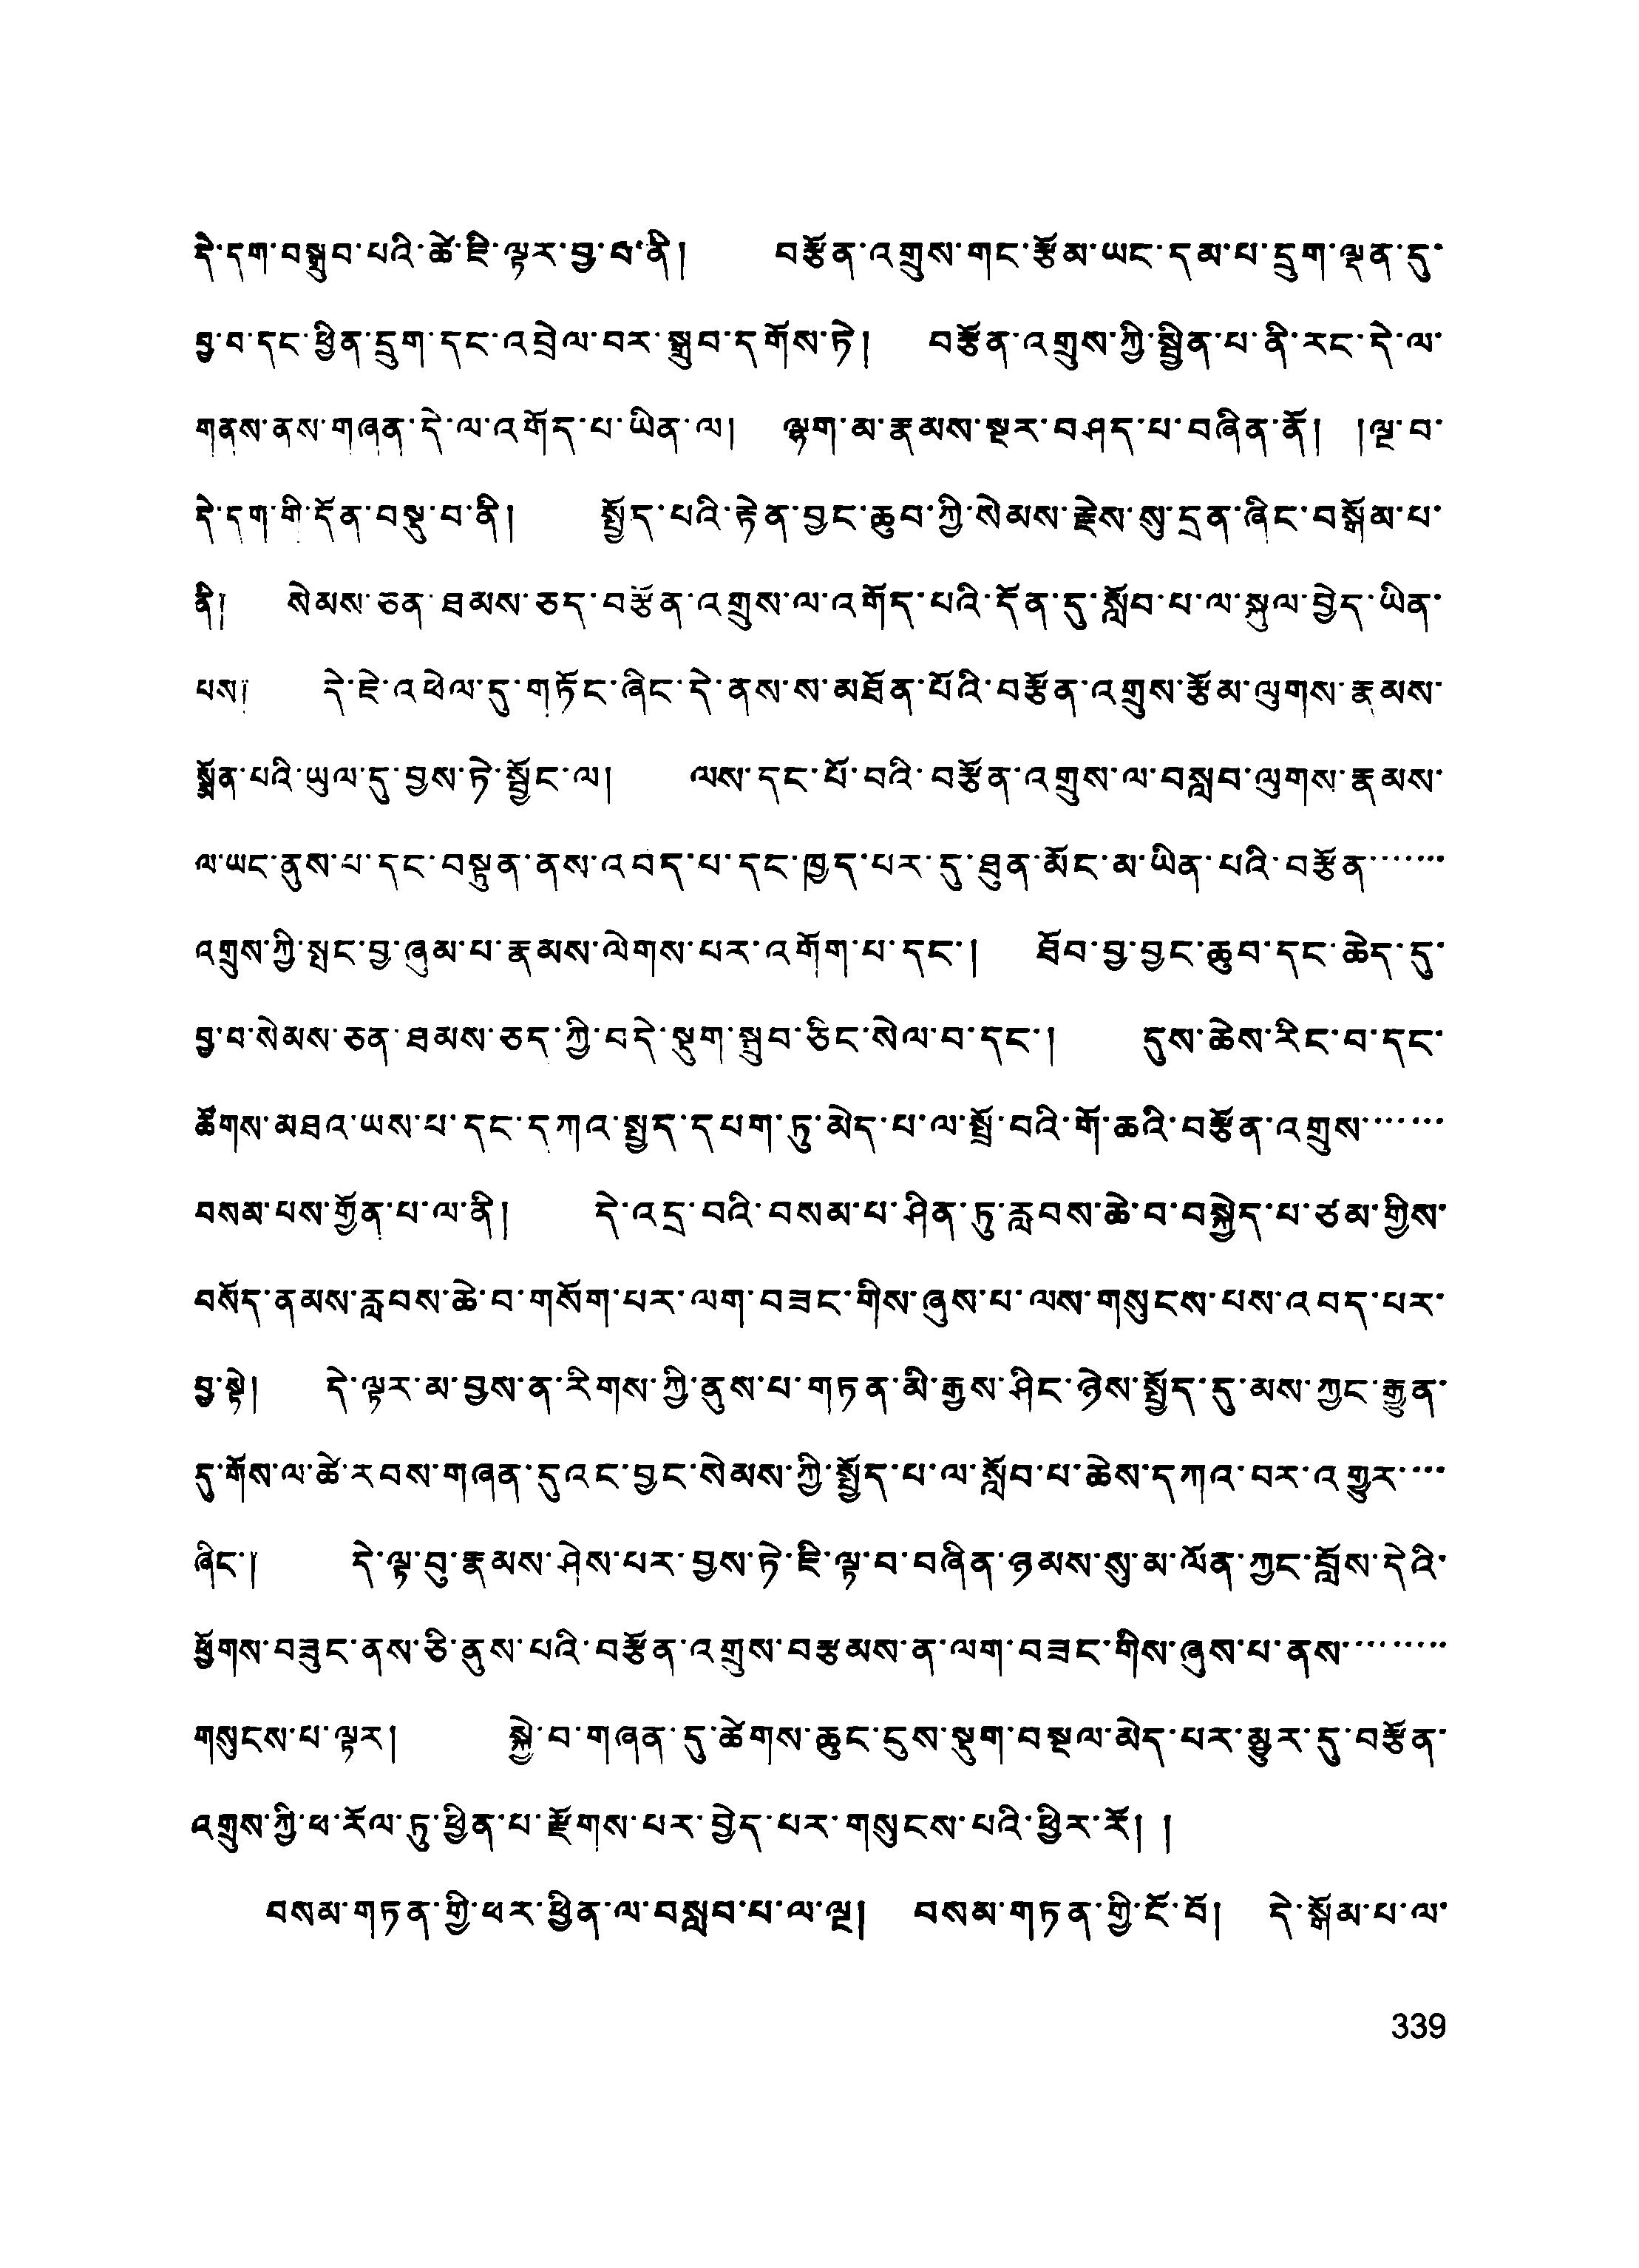 དེ་དག་བསྒྲུབ་པའི་ཚེ་ཇི་ལྟར་བྱ་བ་ནི། བརྩོན་འགྲུས་གང་རྩོམ་ཡང་དམ་པ་དྲུག་ལྡན་དུ་
བྱ་བ་དང་ཕྱིན་དྲུག་དང་འབྲེལ་བར་སྒྲུབ་དགོས་ཏེ། བརྩོན་འགྲུས་ཀྱི་སྦྱིན་པ་ནི་རང་དེ་ལ་
གནས་ནས་གཞན་དེ་ལ་འགོད་པ་ཡིན་ལ། ལྷག་མ་རྣམས་སྔར་བཤད་པ་བཞིན་ནོ། །ལྔ་བ་
དེ་དག་གི་དོན་བསྡུ་བ་ནི། སྤྱོད་པའི་རྟེན་བྱང་ཆུབ་ཀྱི་སེམས་རྗེས་སུ་དྲན་ཞིང་བསྒོམ་པ་
ནི། སེམས་ཅན་ཐམས་ཅད་བརྩོན་འགྲུས་ལ་འགོད་པའི་དོན་དུ་སློབ་པ་ལ་སྐུལ་བྱེད་ཡིན་
པས། དེ་ཇེ་འཕེལ་དུ་གཏོང་ཞིང་དེ་ནས་ས་མཐོན་པོའི་བརྩོན་འགྲུས་རྩོམ་ལུགས་རྣམས་
སྨོན་པའི་ཡུལ་དུ་བྱས་ཏེ་སྦྱོང་ལ། ལས་དང་པོ་བའི་བརྩོན་འགྲུས་ལ་བསླབ་ལུགས་རྣམས་
ལ་ཡང་ནུས་པ་དང་བསྟུན་ནས་འབད་པ་དང་ཁྱད་པར་དུ་ཐུན་མོང་མ་ཡིན་པའི་བརྩོན་······
འགྲུས་ཀྱི་སྤང་བྱ་ཞུམ་པ་རྣམས་ལེགས་པར་འགོག་པ་དང་། ཐོབ་བྱ་བྱང་ཆུབ་དང་ཆེད་དུ་
བྱ་བ་སེམས་ཅན་ཐམས་ཅད་ཀྱི་བདེ་སྡུག་སྒྲུབ་ཅིང་སེལ་བ་དང་། དུས་ཆེས་རིང་བ་དང་
ཚོགས་མཐའ་ཡས་པ་དང་དཀའ་སྤྱད་དཔག་ཏུ་མེད་པ་ལ་སྤྲོ་བའི་གོ་ཆའི་བརྩོན་འགྲུས་······
བསམ་པས་གྱོན་པ་ལ་ནི། དེ་འདྲ་བའི་བསམ་པ་ཤིན་ཏུ་རླབས་ཆེ་བ་བསྐྱེད་པ་ཙམ་གྱིས་
བསོད་ནམས་རླབས་ཆེ་བ་གསོག་པར་ལག་བཟང་གིས་ཞུས་པ་ལས་གསུངས་པས་འབད་པར་
བྱ་སྟེ། དེ་ལྟར་མ་བྱས་ན་རིགས་ཀྱི་ནུས་པ་གཏན་མི་རྒྱས་ཤིང་ཉེས་སྤྱོད་དུ་མས་ཀྱང་རྒྱུན་
དུ་གོས་ལ་ཚེ་རབས་གཞན་དུའང་བྱང་སེམས་ཀྱི་སྤྱོད་པ་ལ་སློབ་པ་ཆེས་དཀའ་བར་འགྱུར་···
ཞིང་། དེ་ལྟ་བུ་རྣམས་ཤེས་པར་བྱས་ཏེ་ཇི་ལྟ་བ་བཞིན་ཉམས་སུ་མ་ལོན་ཀྱང་བློས་དེའི་
ཕྱོགས་བཟུང་ནས་ཅི་ནུས་པའི་བརྩོན་འགྲུས་བརྩམས་ན་ལག་བཟང་གིས་ཞུས་པ་ནས་········
གསུངས་པ་ལྟར། སྐྱེ་བ་གཞན་དུ་ཚེགས་ཆུང་ངུས་སྡུག་བསྔལ་མེད་པར་མྱུར་དུ་བརྩོན་
འགྲུས་ཀྱི་ཕ་རོལ་ཏུ་ཕྱིན་པ་རྫོགས་པར་བྱེད་པར་གསུངས་པའི་ཕྱིར་རོ། །
བསམ་གཏན་གྱི་ཕར་ཕྱིན་ལ་བསླབ་པ་ལ་ལྔ། བསམ་གཏན་གྱི་ངོ་བོ། དེ་སྒོམ་པ་ལ་
339